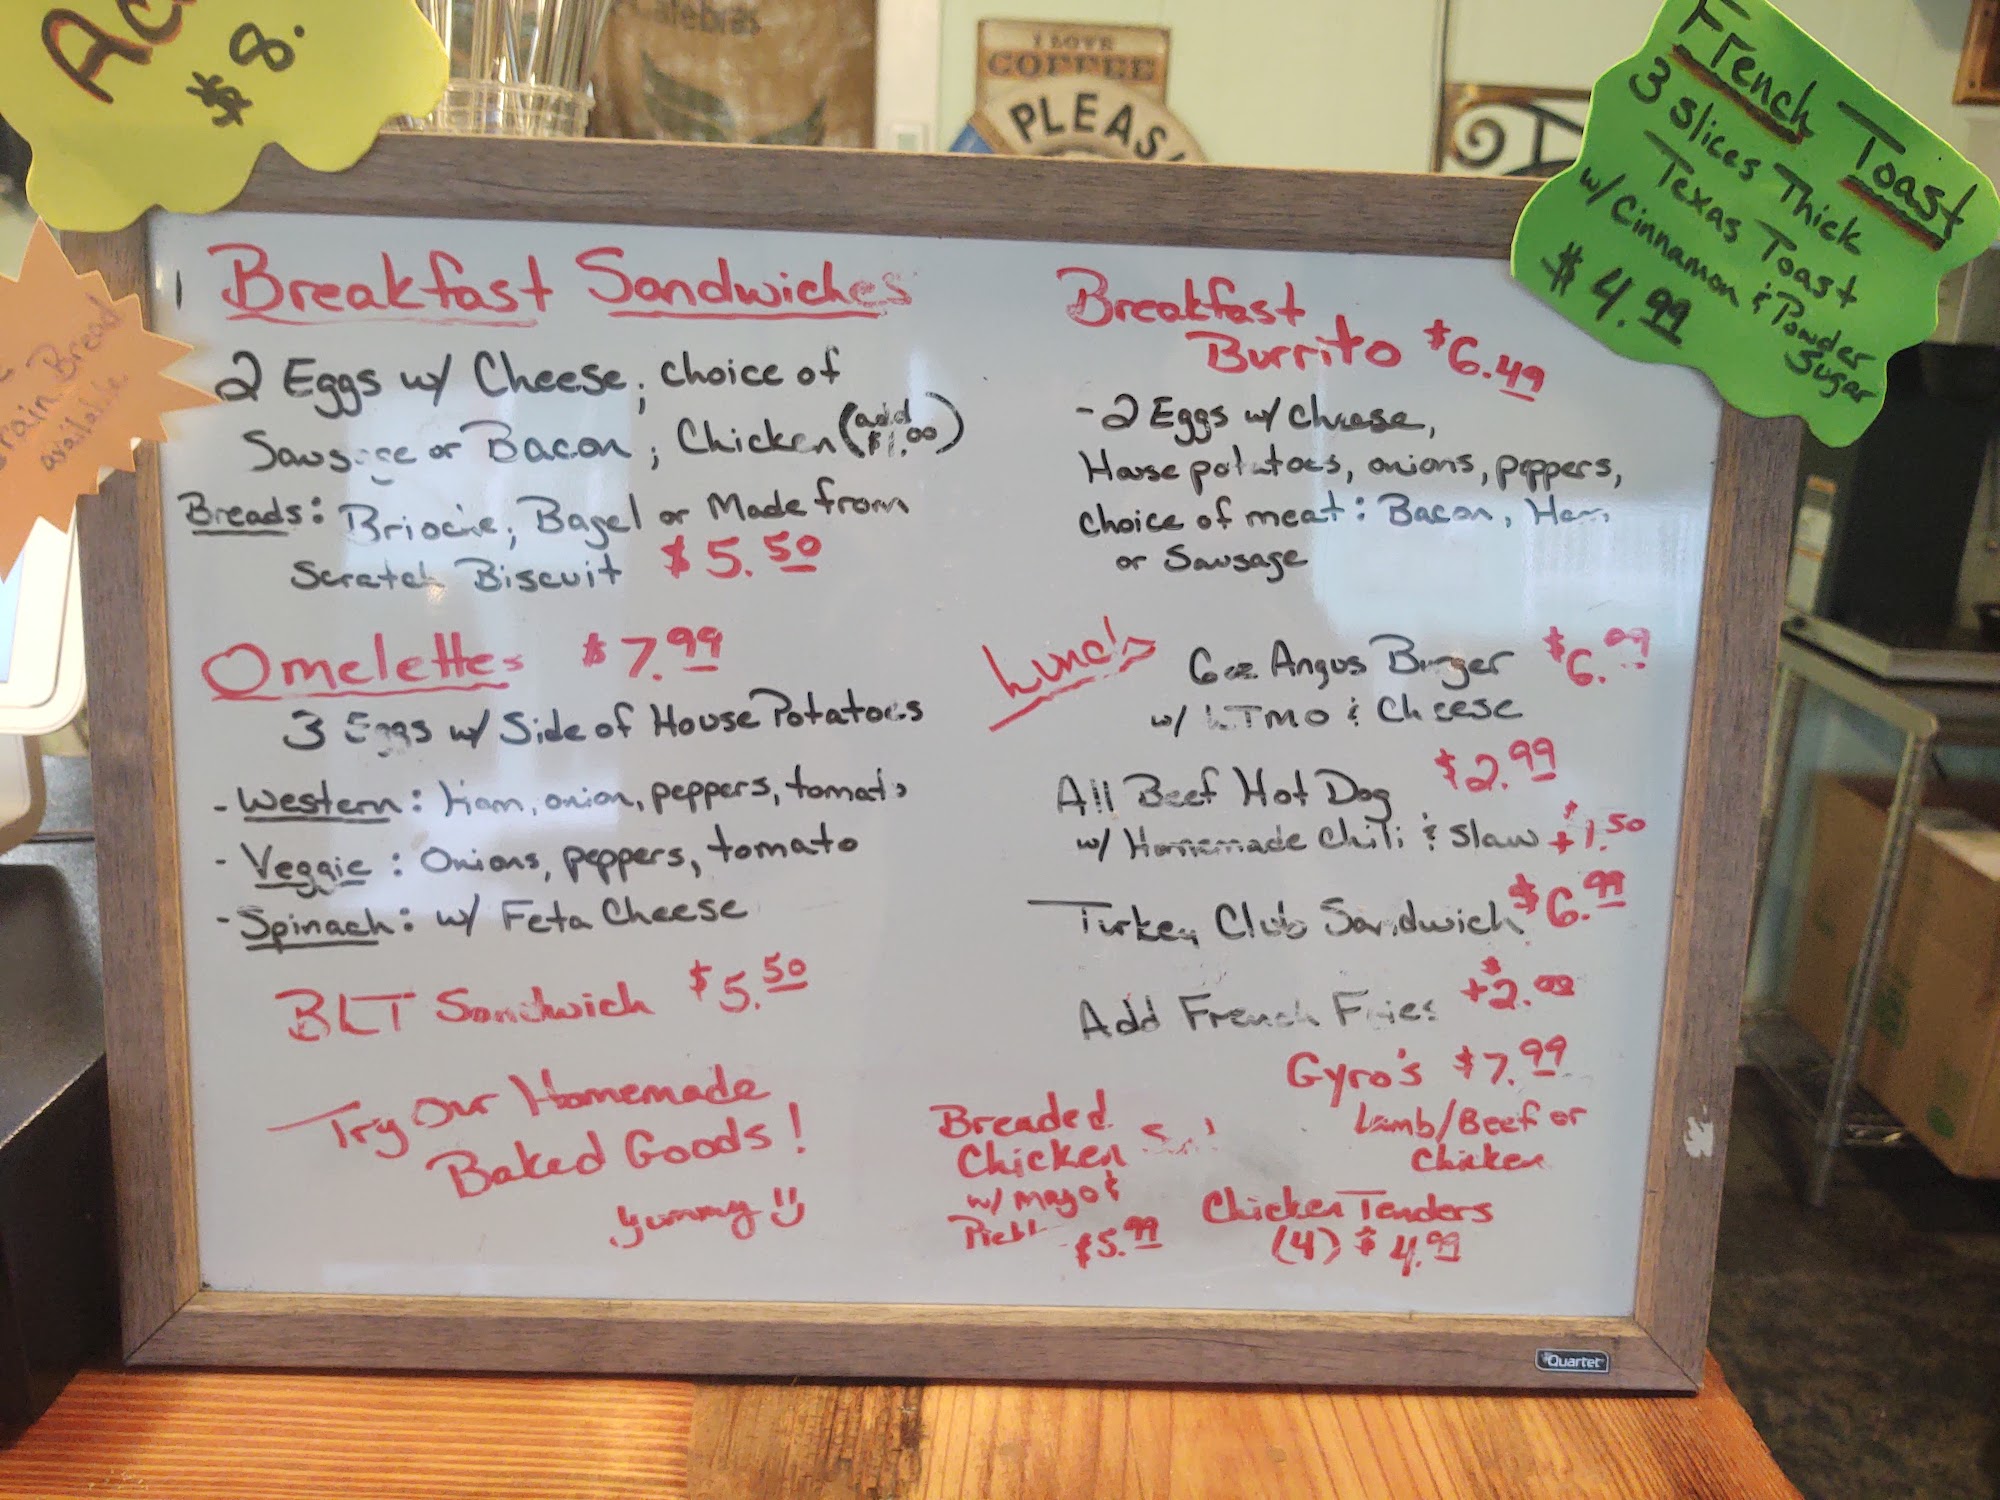 $8.
Calebras
I LOVE
COFFEE
PLEAS
French Toast
3 slices Thick
Texas Toast
w/ Cinnamon & Powder
Sugar
$4.99
rain Bread
available
Breakfast Sandwiches
2 Eggs w/ Cheese, choice of
Sausage or Bacon, Chicken (add $1.00)
Breads: Brioche, Bagel or Made from
Scratch Biscuit $5.50
Omelettes $7.99
3 Eggs w/ Side of House Potatoes
- Western: Ham, onion, peppers, tomato
- Veggie: Onions, peppers, tomato
- Spinach: w/ Feta Cheese
BLT Sandwich $5.50
Try Our Homemade
Baked Goods!
yummy
Breakfast
Burrito $6.49
- 2 Eggs w/ cheese,
House potatoes, onions, peppers,
choice of meat: Bacon, Ham,
or Sausage
Lunch
6oz Angus Burger $6.99
w/ LTMO & Cheese
All Beef Hot Dog $2.99
w/ Homemade Chili & Slaw +$1.50
Turkey Club Sandwich $6.99
Add French Fries +$2.00
Gyro's $7.99
Lamb/Beef or
Chicken
Breaded
Chicken
w/ mayo &
$5.99
Chicken Tenders
(4) $4.99
Quartet